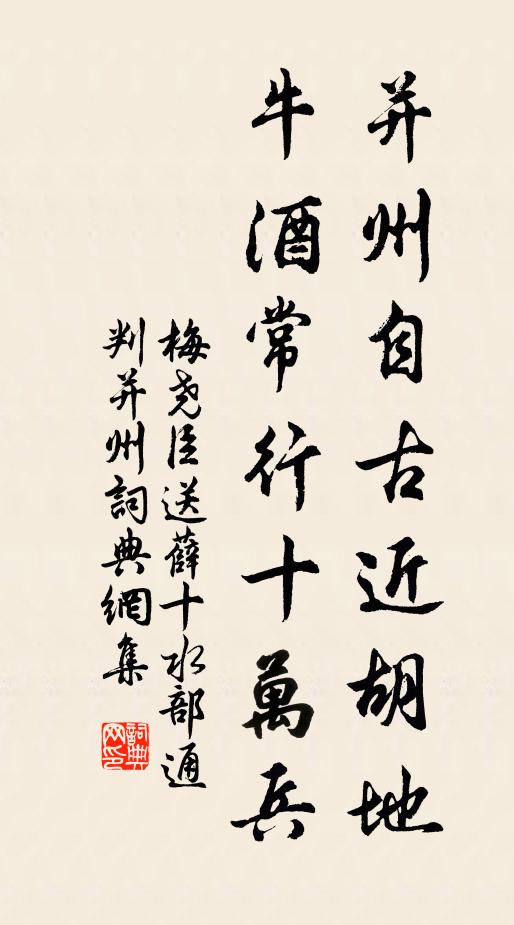 并州自古近胡地
牛酒常行十萬兵
梅尧臣送薛十水部通
判并州詞典網集
詞典
网印